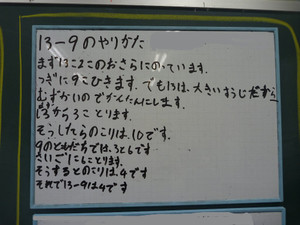 13-9のやりかた
まず13こ2このおさらにのっています。
つぎに9こひきます。でも13は、大きいすうじだから
むずかいのでかんたんにします。
しろから3ことります。
そうしたらのこりは、10です。
9のともだちでは、3と6です
さいごに6ことります。
そうするとのこりは、4です
それで13-9は4です